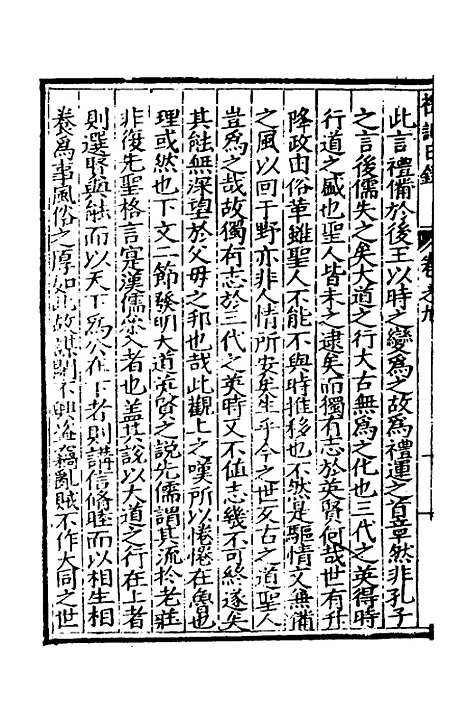 此言禮備於後王以時之變為之故為禮運之首章然非孔子
之言後儒失之矣大道之行大古無為之化也三代之英得時
行道之盛也聖人皆未之逮矣而獨有志於英賢何哉世有升
降政由俗革雖聖人不能不與時推移也不然是驅情文無備
之風以回于野亦非人情所安矣生乎今之世反古之道聖人
豈為之哉故獨有志於三代之英時又不值志幾不可終遂矣
其能無深望於父母之邦也哉此觀上之嘆所以惓惓在魯也
理或然也下文二節發明大道英賢之說先儒謂其流於老莊
非復先聖格言寔漢儒宗入者也盖其說以大道之行在上者
則選賢與能而以天下為公在下者則講信脩睦而以相生相
養為事風俗之厚如此故謀閉不興盗竊亂賊不作大同之世
卷之九